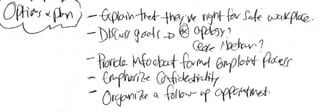 Options + plan
- Explain that they've right for safe workplace.
- Discuss goals → ⊗ apology?
Cease behavior?
- Provide info about formal complaint process
- Emphasize Confidentiality
- Organize a follow up appointment.